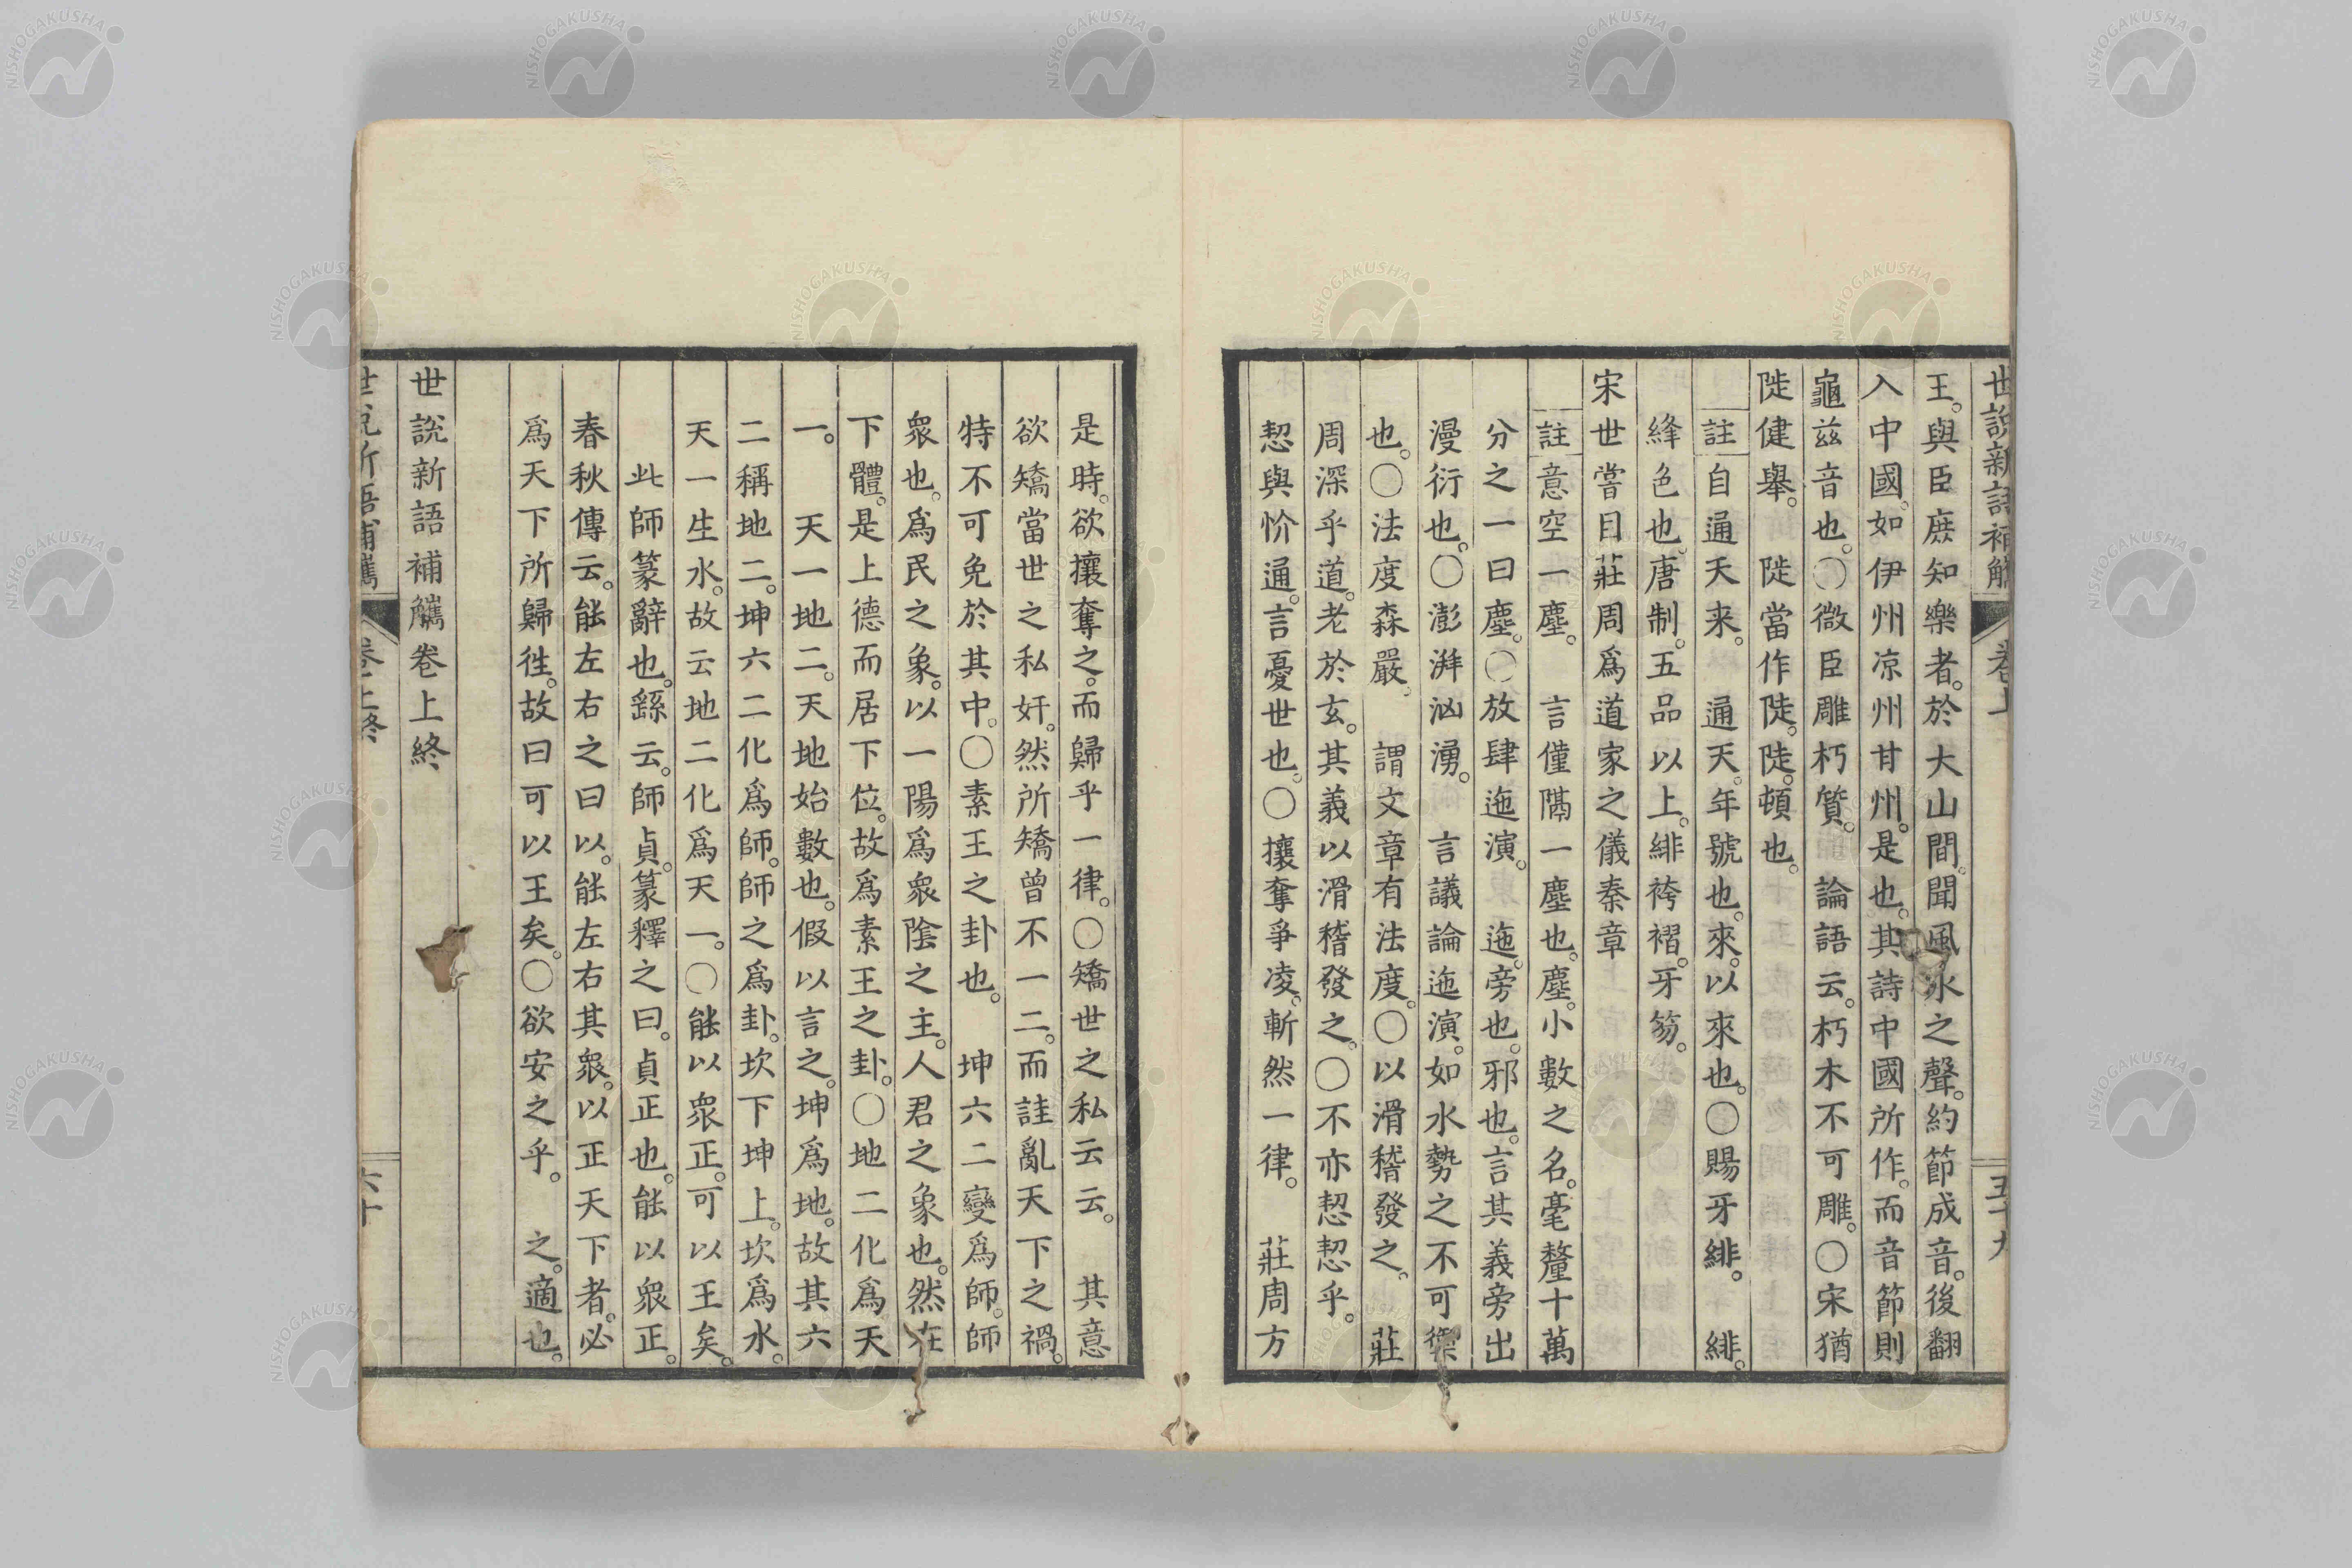 世說新語補觿 卷上 五十九
王。與臣庶知樂者。於大山間。聞風水之聲。約節成音。後翻
入中國。如伊州凉州甘州。是也。其詩中國所作。而音節則
龜兹音也。○微臣雕朽質。 論語云。朽木不可雕。○宋猶
陡健舉。 陡當作陡。陡。頓也。
註自通天来。 通天。年號也。來。以來也。○賜牙緋。 緋。
絳色也。唐制。五品以上。緋袴褶。牙笏。
宋世嘗目莊周爲道家之儀秦章
註意空一塵。 言僅隔一塵也。塵。小數之名。毫釐十萬
分之一曰塵。○放肆迤演。 迤。旁也。邪也。言其義旁出
漫衍也。○澎湃汹湧。 言議論迤演。如水勢之不可禦
也。○法度森嚴。 謂文章有法度。○以滑稽發之。 莊
周深乎道。老於玄。其義以滑稽發之。○不亦恝恝乎。
恝與忦通。言憂世也。○攘奪爭凌。斬然一律。 莊周方
是時。欲攘奪之。而歸乎一律。○矯世之私云云。 其意
欲矯當世之私奸。然所矯曾不一二。而詿亂天下之禍。
特不可免於其中。○素王之卦也。 坤六二變爲師。師
衆也。爲民之象。以一陽爲衆陰之主。人君之象也。然在
下體。是上德而居下位。故爲素王之卦。○地二化爲天
一。 天一地二。天地始數也。假以言之。坤爲地。故其六
二稱地二。坤六二化爲師。師之爲卦。坎下坤上。坎爲水。
天一生水。故云地二化爲天一。○能以衆正。可以王矣。
此師彖辭也。繇云。師貞。彖釋之曰。貞正也。能以衆正。
春秋傳云。能左右之曰以。能左右其衆。以正天下者。必
爲天下所歸徃。故曰可以王矣。○欲安之乎。 之。適也。
世說新語補觿卷上終
世說新語補觿 卷上終 六十